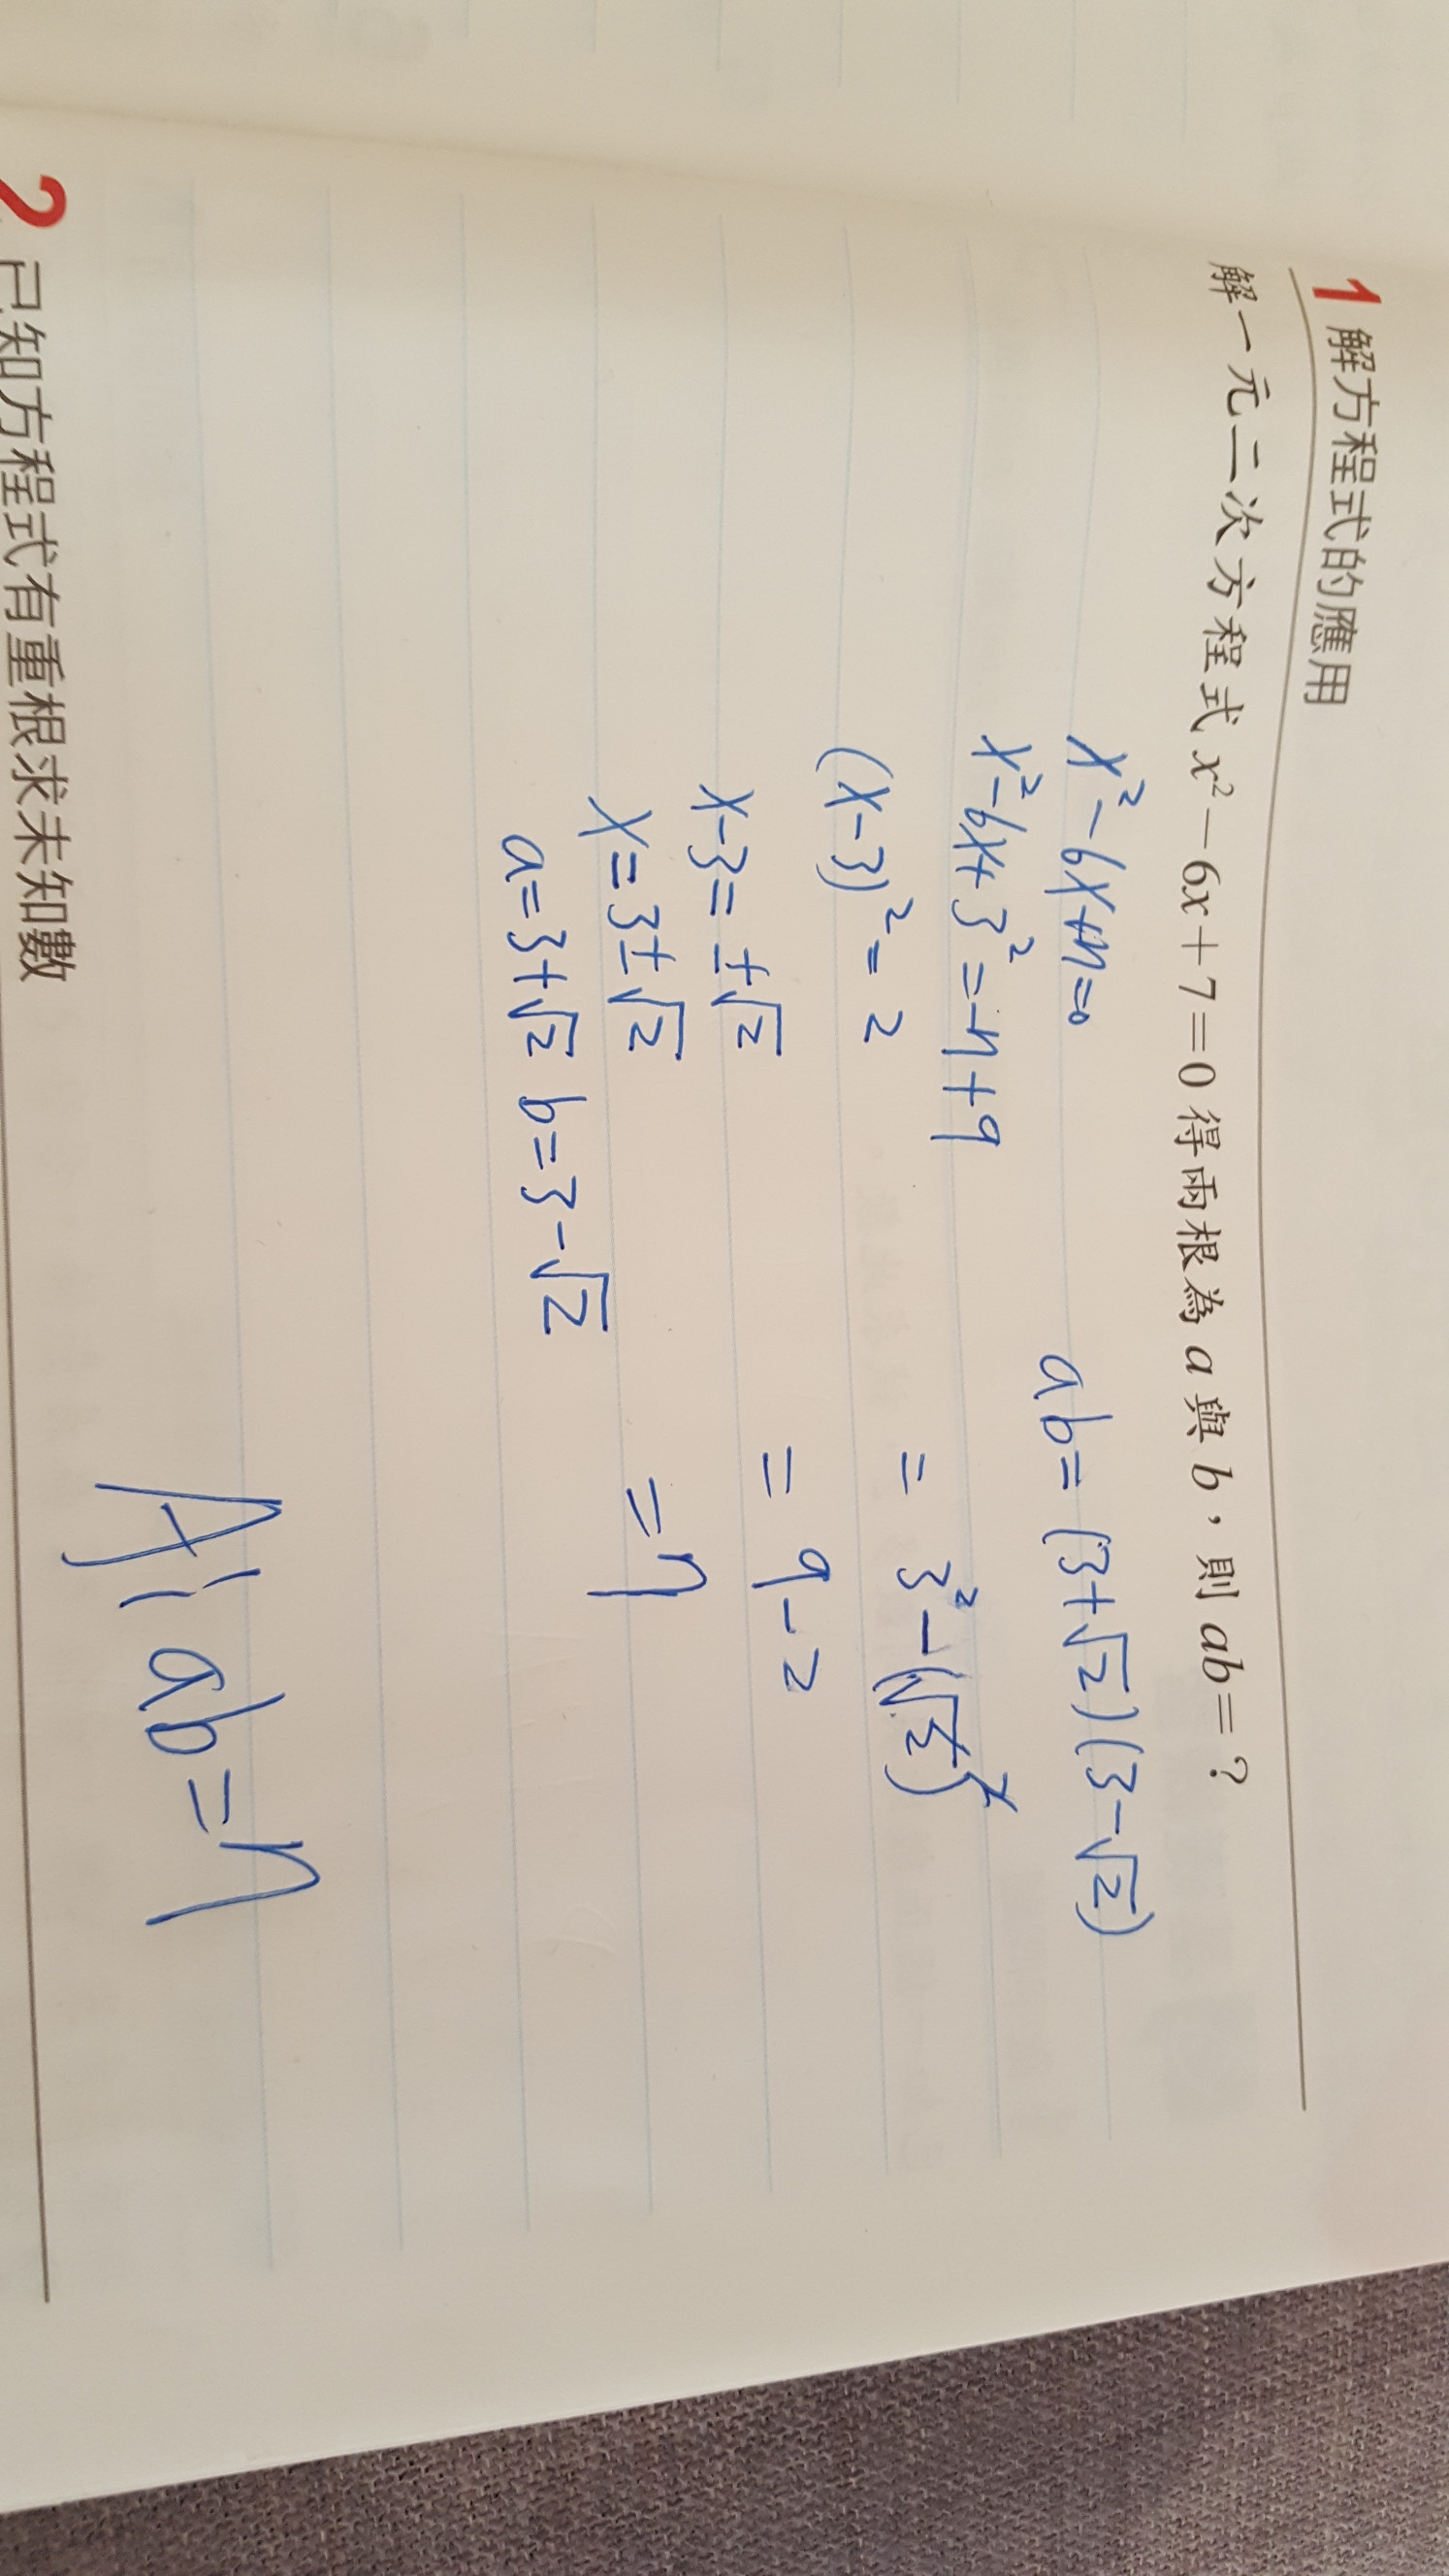 1 解方程式的應用
解一元二次方程式 x²－6x＋7＝0 得兩根為 a 與 b，則 ab＝？
x²-6x+7=0
x²-6x+3²=-7+9
(x-3)²=2
x-3=±√2
x=3±√2
a=3+√2 b=3-√2
ab=(3+√2)(3-√2)
=3²-(√2)²
=9-2
=7
A: ab=7
2 已知方程式有重根求未知數